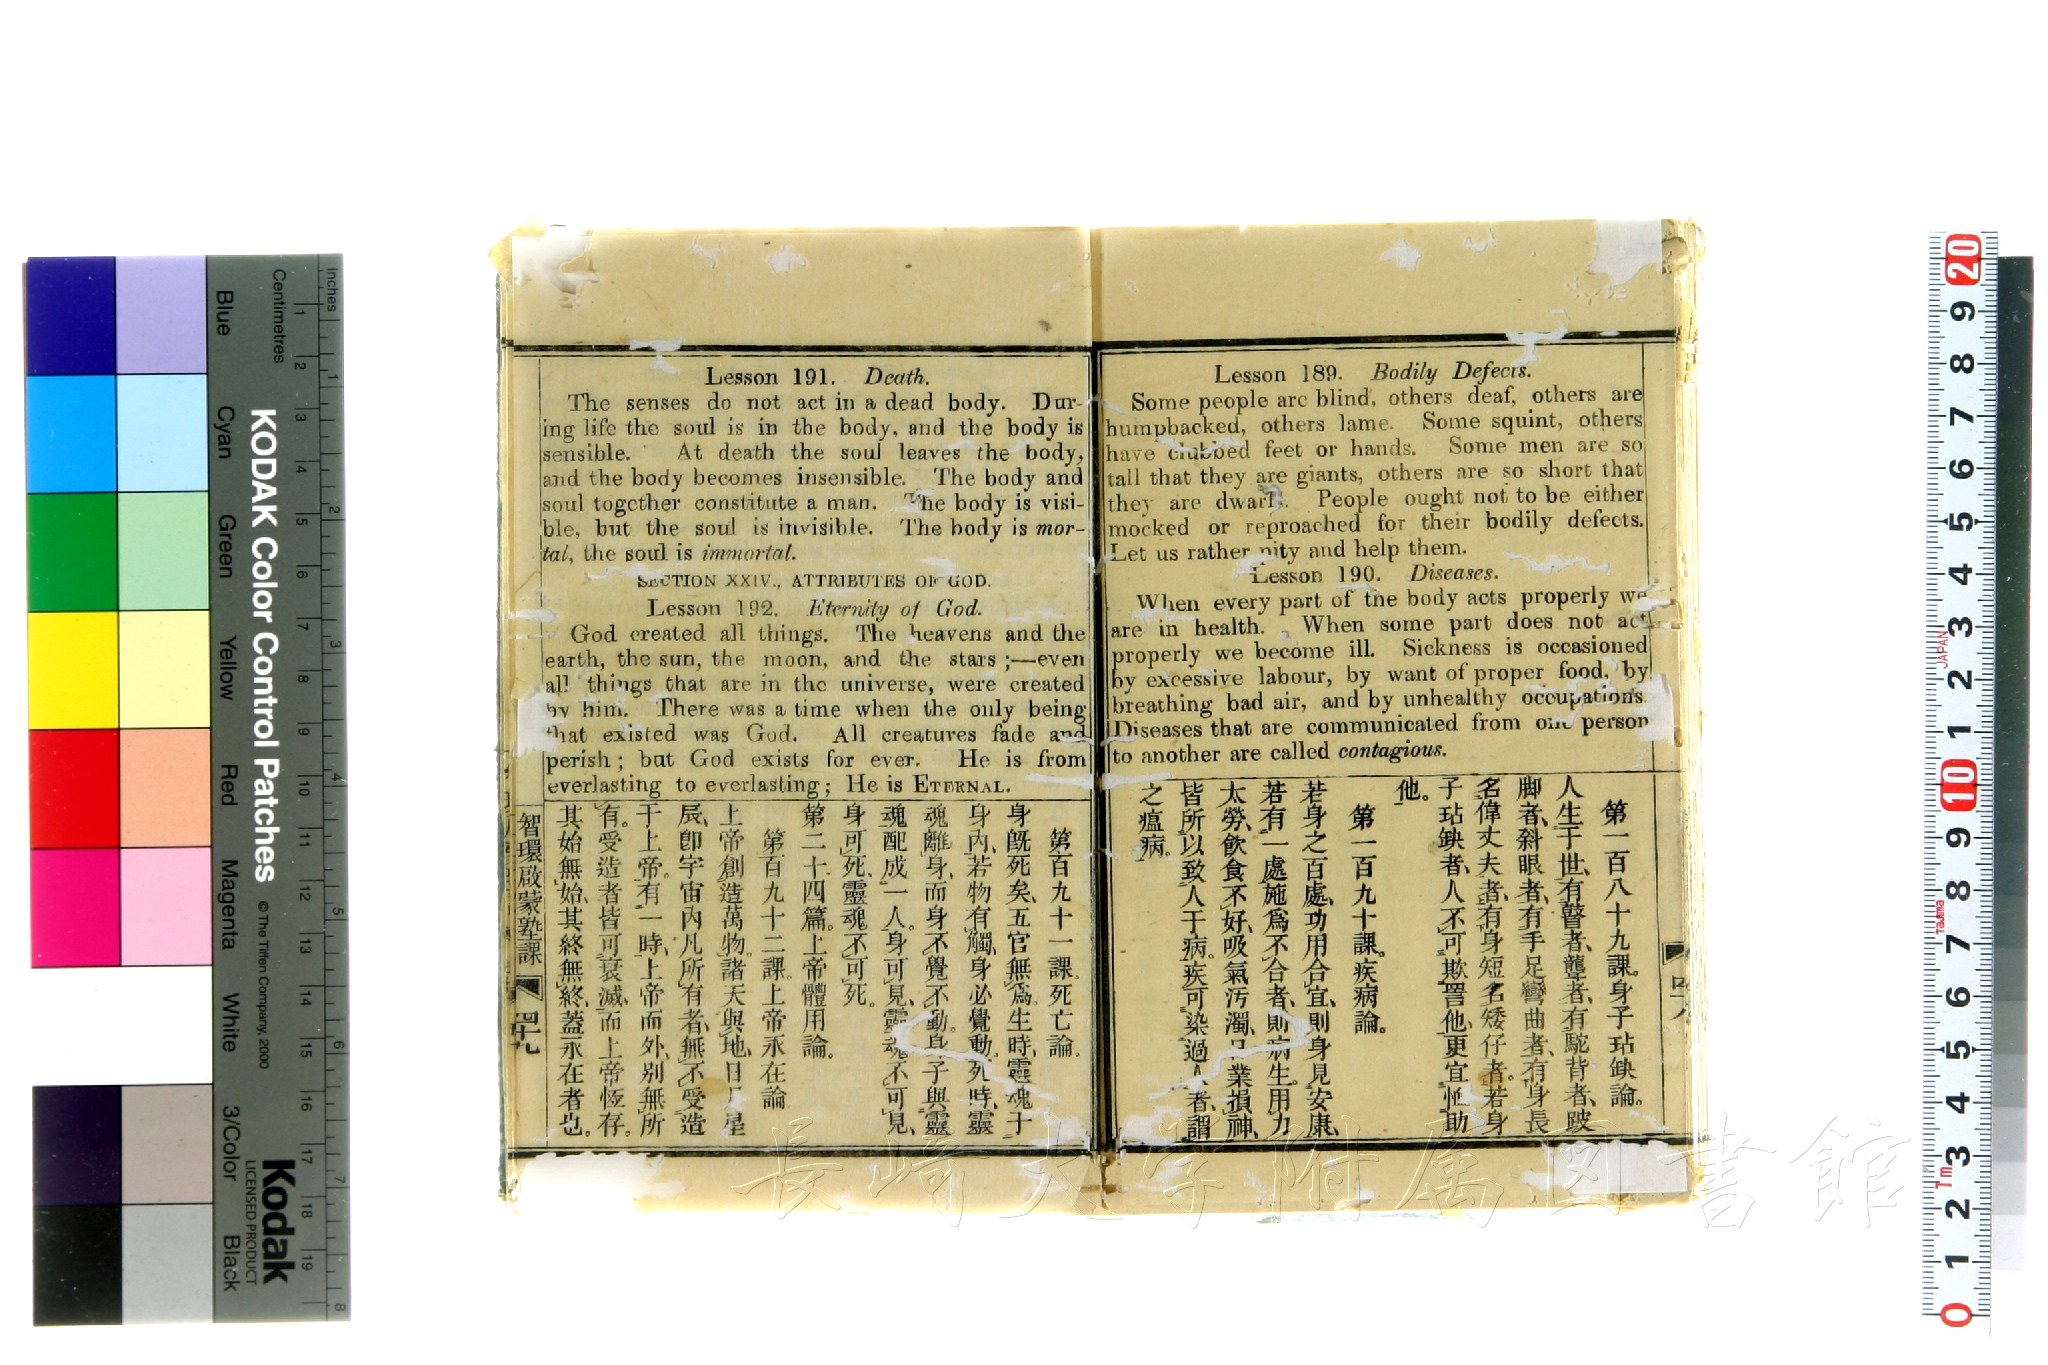 Lesson 189. Bodily Defects.
Some people are blind, others deaf, others are
humpbacked, others lame. Some squint, others
have clubbed feet or hands. Some men are so
tall that they are giants, others are so short that
they are dwarfs. People ought not to be either
mocked or reproached for their bodily defects.
Let us rather pity and help them.
Lesson 190. Diseases.
When every part of the body acts properly we
are in health. When some part does not act
properly we become ill. Sickness is occasioned
by excessive labour, by want of proper food, by
breathing bad air, and by unhealthy occupations.
Diseases that are communicated from one person
to another are called contagious.
第一百八十九課。身子玷缺論。
人生于世、有瞽者、聾者、有駝背者、跛
脚者、斜眼者、有手足彎曲者、有身長
名偉丈夫者、有身短名矮仔者、若身
子玷缺者、人不可欺詈他、更宜恤助
他。
第一百九十課。疾病論。
若身之百處、功用合宜、則身見安康、
若有一處施爲不合者、則病生。用力
太勞、飲食不好、吸氣汚濁、業損神、
皆所以致人于病。疾可染過人者、謂
之瘟病。
Lesson 191. Death.
The senses do not act in a dead body. Dur-
ing life the soul is in the body, and the body is
sensible. At death the soul leaves the body,
and the body becomes insensible. The body and
soul together constitute a man. The body is visi-
ble, but the soul is invisible. The body is mor-
tal, the soul is immortal.
SECTION XXIV., ATTRIBUTES OF GOD.
Lesson 192. Eternity of God.
God created all things. The heavens and the
earth, the sun, the moon, and the stars ;—even
all things that are in the universe, were created
by him. There was a time when the only being
that existed was God. All creatures fade and
perish; but God exists for ever. He is from
everlasting to everlasting; He is ETERNAL.
第百九十一課。死亡論。
身旣死矣、五官無爲。生時、靈魂于
身內、若物有觸、身必覺動。死時、靈
魂離身、而身不覺不動。身子與靈
魂配成一人。身可見、靈魂不可見、
身可死、靈魂不可死。
第二十四篇。上帝體用論。
第百九十二課。上帝永在論
上帝創造萬物。諸天與地、日月星
辰、卽宇宙內凡所有者、無不受造
于上帝。有一時、上帝而外、別無所
有。受造者皆可衰滅、而上帝恆存。
其始無始、其終無終、蓋永在者也。
智環啟蒙塾課
四十九
KODAK Color Control Patches
© The Tiffen Company, 2000
Kodak
LICENSED PRODUCT
Inches
Centimetres
Blue
Cyan
Green
Yellow
Red
Magenta
White
3/Color
Black
1 2 3 4 5 6 7 8 9 10 11 12 13 14 15 16 17 18 19
1 2 3 4 5 6 7 8
20 9 8 7 6 5 4 3 2 1 10 9 8 7 6 5 4 3 2 1 0
JAPAN
Tajima
1m
長崎大学附属図書館